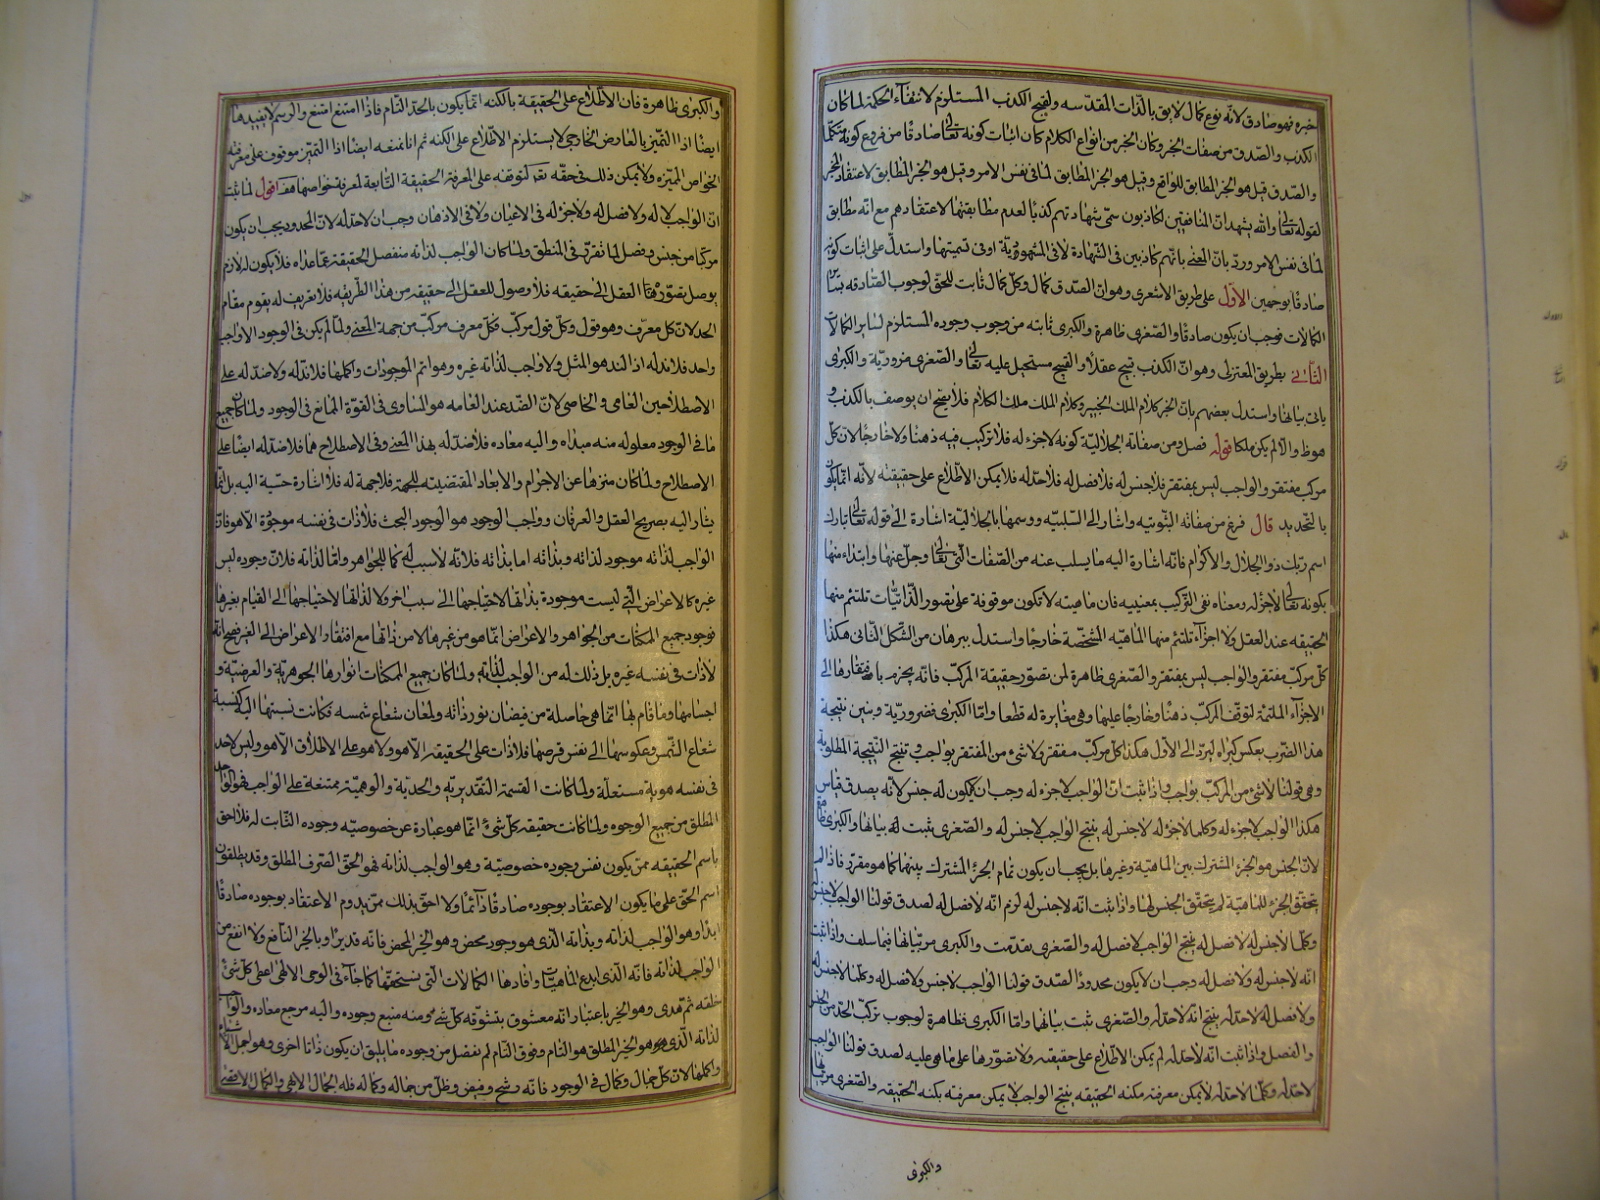 خبره فهو صادق لانّه نوع كمال لايق بالذّات المقدّسه ولقبح الكذب المستلزم لانتفاء الحكمة لما كان
الكذب والصّدق من صفات الخبر وكان الخبر من انواع الكلام كان اثبات كونه تعالى صادقًا من فروع كونه متكلّما
والصّدق قيل هو الخبر المطابق للواقع وقيل هو الخبر المطابق لما فى نفس الامر وقيل هو الخبر المطابق لاعتقاد المخبر
لقوله تعالى والله يشهد انّ المنافقين لكاذبون سمّى شهادتهم كذبًا لعدم مطابقتها لاعتقادهم مع انّه مطابق
لما فى نفس الامر وردّ بانّ المعنى بانّهم كاذبين فى الشّهادة لا فى المشهود به او فى تسميتها واستدلّ على اثبات كونه
صادقًا بوجهين الاوّل على طريق الاشعرى وهو انّ الصّدق كمال وكلّ كمال ثابت للحقّ لوجوب اتصافه بسائر
الكمالات فوجب ان يكون صادقًا والصّغرى ظاهرة والكبرى ثابته من وجوب وجوده المستلزم لساير الكمالات
الثّانى بطريق المعتزلى وهو انّ الكذب قبيح عقلًا والقبيح مستحيل عليه تعالى والصّغرى ضروريّة والكبرى
ياتى بيانها واستدل بعضهم بانّ الخبر كلام الملك الخبير وكلام الملك ملك الكلام فلا يصحّ ان يوصف بالكذب و
هو ظ والّا لم يكن ملكا قوله فصل ومن صفاته الجلاليّة كونه لا جزء له فلا تركيب فيه ذهنًا ولا خارجًا لانّ كلّ
مركب مفتقر والواجب ليس بمفتقر فلا جنس له فلا فصل له فلا حدّ له فلا يمكن الاطّلاع على حقيقته لانّه انّما يكون
بالتّحديد قال فرغ من صفاته الثّبوتيه واشار الى السّلبيّه ووسمها بالجلاليّة اشارة الى قوله تعالى تبارك
اسم ربّك ذو الجلال والاكرام فانّه اشارة اليه ما يسلب عنه من الصّفات الّتى تعالى وجلّ عنها وابتداء منها
بكونه تعالى لا جزء له ومعناه نفى التّركيب بمعنييه فان ماهيته لا تكون موقوفة على تصور الذّاتيّات تلتئم منها
الحقيقه عند العقل ولا اجزاء تلتئم منها الماهيّه المشخّصة خارجًا واستدل ببرهان من الشّكل الثّانى هكذا
كلّ مركّب مفتقر والواجب ليس بمفتقر والصّغرى ظاهرة لمن تصوّر حقيقة المركّب فانّه يجزم بافتقارها الى
الاجزاء الملتئمة لتوقّف المركّب ذهنًا وخارجًا عليها وهى مغايرة له قطعا وامّا الكبرى فضروريّة وبتبيين نتيجة
هذا الضّرب بعكس كبراه ليردّ الى الاوّل هكذا كلّ مركّب مفتقر ولا شىء من المفتقر بواجب وتنتج النّتيجة المطلوبة
وهى قولنا لا شىء من المركّب بواجب واذا ثبت انّ الواجب لا جزء له وجب ان لا يكون له جنس لانّه يصدق قياس
هكذا الواجب لا جزء له وكلّما لا جزء له لا جنس له ينتج الواجب لا جنس له والصّغرى ثبت له بيانها والكبرى
لانّ الجنس هو الجزء المشترك بين الماهية وغيرها بل يجب ان يكون تمام الجزء المشترك بينهما كما هو مقرّر فاذا لم
يتحقق الجزء للماهيّة لم يتحقّق الجنس لها واذا ثبت انّه لا جنس له لزم انّه لا فصل له لصدق قولنا الواجب لا جنس له
وكلّما لا جنس له لا فصل له ينتج الواجب لا فصل له والصّغرى تقدّمت والكبرى مرّ بيانها فيما سلف واذا ثبت
انّه لا جنس له ولا فصل له وجب ان لا يكون محدودًا لصدق قولنا الواجب لا جنس ولا فصل له وكلّما لا جنس له
ولا فصل له لا حدّ له ينتج انّه لا حدّ له والصّغرى ثبت بيانها وامّا الكبرى فظاهرة لوجوب تركّب الحدّ من الجنس
والفصل واذا ثبت انّه لا حدّ له لم يمكن الاطّلاع على حقيقته ولا تصوّرها على ما هى عليه لصدق قولنا الواجب
لا حدّ له وكلّما لا حدّ له لا يمكن معرفته بكنه الحقيقه ينتج الواجب لا يمكن معرفته بكنه الحقيقه والصّغرى مرّ بيانها
والكبرى
والكبرى ظاهرة فان الاطّلاع على الحقيقة بالكنه انّما يكون بالحدّ التّام فاذا امتنع امتنع والرسم لا يفيدها
ايضًا اذا التّميّز بالعارض الخارجى لا يستلزم الاطّلاع على الكنه ثم انا نمنعه ايضًا اذا التميّز موقوف على معرفة
الخواصّ المميّزه ولا يمكن ذلك فى حقّه تعالى لتوقفه على المعرفة الحقيقة التّابعة لمعرفة خواصها هف اقول لما ثبت
انّ الواجب لا له ولا فصل له ولا جزء له فى الاعيان ولا فى الاذهان وجب ان لا حدّ له لانّ المحدود يجب ان يكون
مركبًا من جنس وفصل لما تقرّر فى المنطق ولما كان الواجب لذاته منفصل الحقيقة عمّا عداه فلا يكون له لازم
يوصل تصوّرها العقل الى حقيقته فلا وصول للعقل الى حقيقته من هذا الطّريقه فلا تعريف له يقوم مقام
الحد لانّ كل معرّف وهو قول وكلّ قول مركّب فكلّ معرف مركّب من جهة المعنى ولمّا لم يكن فى الوجود الا واجب
واحد فلا ندّ له اذ الند هو المثل ولا واجب لذاته غيره وهو اتم الموجودات واكملها فلا ندّ له ولا ضدّ له على
الاصطلاحين العامى والخاصى لانّ الضّد عند العامه هو المساوى فى القوّة الممانع فى الوجود ولما كان جميع
ما فى الوجود معلوله منه مبداه واليه معاده فلا ضدّ له بهذا المعنى وفى الاصطلاح هما فلا ضدّ له ايضًا على
الاصطلاح ولما كان منزهًا عن الاجرام والابعاد المقتضيته للجهة فلا جهة له فلا اشارة حسّية اليه بل انّما
يشار اليه بصريح العقل والعرفان وواجب الوجود هو الوجود البحت فلا ذات فى نفسه موجوده الّا هو فانّ
الواجب لذاته موجود لذاته وبذاته اما بذاته فلانّه لا سبب له كما للجواهر وامّا لذاته فلانّ وجوده ليس
غيره كالاعراض الّتى ليست موجودة بذاتها لاحتياجها الى سبب اخر ولا لذاتها لاحتياجها الى القيام بغيرها
فوجود جميع الممكنات من الجواهر والاعراض انّما هو من غيرها لا من ذاتها مع افتقار الاعراض الى الغير فصحّ انّه
لا ذات فى نفسه غيره بل ذلك له من الواجب لذاته ولما كان جميع الممكنات انوارها الجوهريّة والعرضيّة و
اجسامها وما قام بها انّما هى حاصلة من فيضان نور ذاته ولمعان شعاع شمسه فكانت نسبتها اليه كنسبة
شعاع الشّمس وعكوسها الى نفس قرصها فلا ذات على الحقيقه الّا هو ولا هو على الاطلاق الّا هو وليس لاحد
فى نفسه هويّة مستعلة ولما كانت القسمة التّقديريّه والحديّة والوهميّة ممتنعة على الواجب فهو الواحد
المطلق من جميع الوجوه ولما كانت حقيقة كلّ شىء انّما هو عبارة عن خصوصيّه وجوده الثّابت له فلا احقّ
باسم الحقيقه ممّن يكون نفس وجوده خصوصيّة وهو الواجب لذاته فهو الحقّ الصّرف المطلق وقد يطلقون
اسم الحقّ على ما يكون الاعتقاد بوجوده صادقًا دائمًا ولا احقّ بذلك ممّن يدوم الاعتقاد بوجوده صادقًا
ابدًا وهو الواجب لذاته وبذاته الّذى هو وجود محض وهو الخير المحض فانّه قديرًا وبالخير النّافع ولا انفع من
الواجب لذاته فانّه الّذى ابدع الماهيّات وافادها الكمالات الّتى نستحقّها كما جاء فى الوحى الالهى اعطى كلّ شىء
خلقه ثمّ هدى وهو الخير باعتبار انّه معشوق يتشوّقه كلّ شىء ومنه منبع وجوده واليه مرجع معاده والواجب
لذاته الّذى هو الخير المطلق هو التّام وفوق التّام لم تفضل من وجوده ما يليق ان يكون ذاتا اخرى وهو اجمل الاشياء
واكملها لانّ كلّ جمال وكمال فى الوجود فانّه رشح وفيض وظلّ من جماله وكماله فله الجمال الابهى والكمال الاقصى